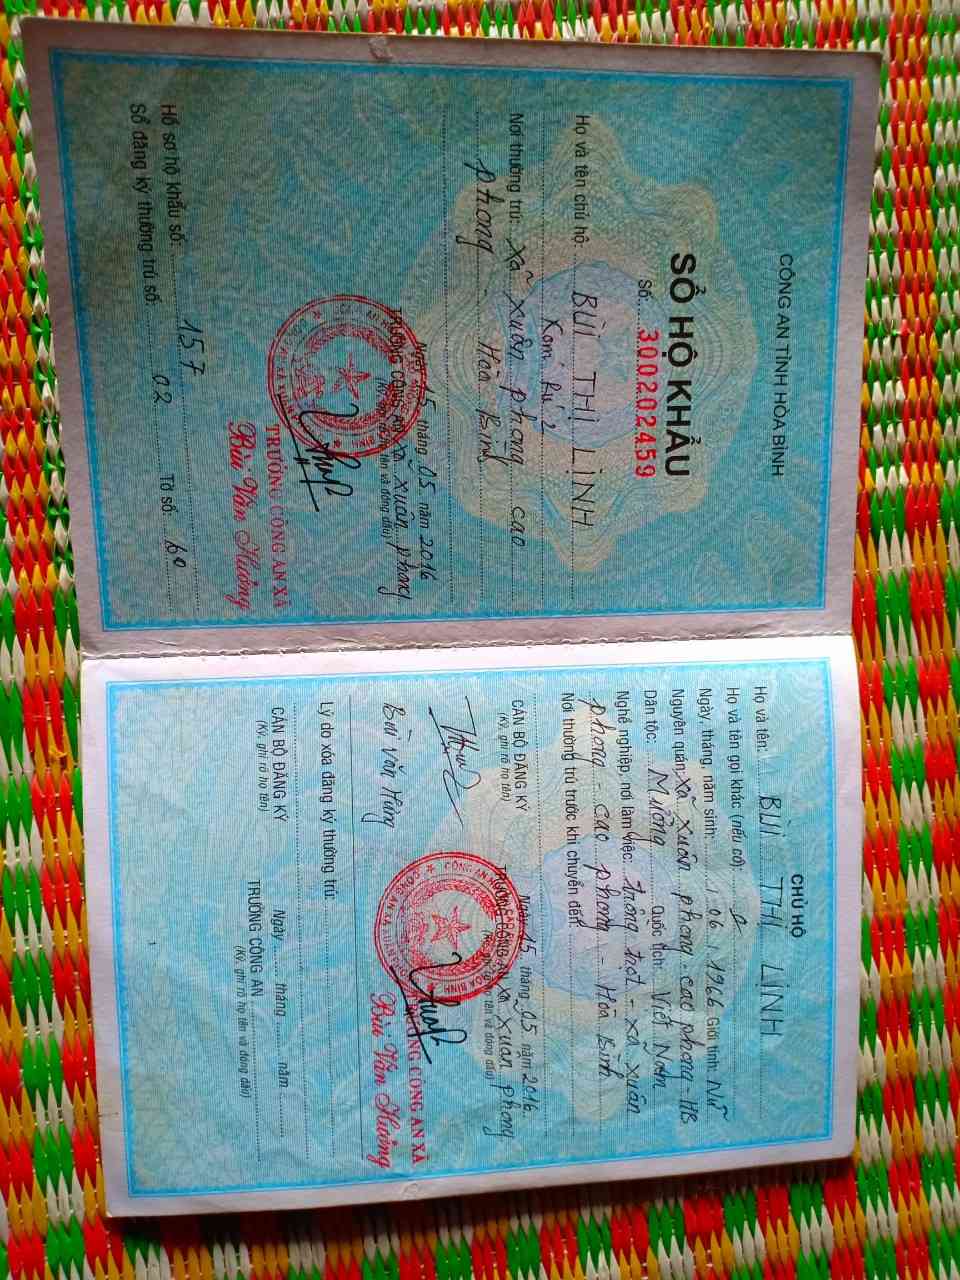 CÔNG AN TỈNH HÒA BÌNH
SỔ HỘ KHẨU
Số: 300202459
Họ và tên chủ hộ: BÙI THỊ LỊNH
Xóm: Rú 2
Nơi thường trú: xã xuân phong cao
phong - Hòa Bình
Ngày 15 tháng 05 năm 2016
TRƯỞNG CÔNG AN xã xuân phong
TRƯỞNG CÔNG AN XÃ
Bùi Văn Hưởng
Hồ sơ hộ khẩu số: 157
Sổ đăng ký thường trú số: 02 Tờ số: 60
CHỦ HỘ
Họ và tên: BÙI THỊ LỊNH
Họ và tên gọi khác (nếu có):
Ngày, tháng, năm sinh: 1 / 06 / 1966 Giới tính: Nữ
Nguyên quán: xã xuân phong - cao phong - HB
Dân tộc: Mường Quốc tịch: Việt Nam
Nghề nghiệp, nơi làm việc: trồng trọt - xã xuân
phong - cao phong - Hòa Bình
Nơi thường trú trước khi chuyển đến:
Ngày 15 tháng 05 năm 2016
CÁN BỘ ĐĂNG KÝ TRƯỞNG CÔNG AN xã xuân phong
(Ký, ghi rõ họ tên)
Bùi Văn Hùng
TRƯỞNG CÔNG AN XÃ
Bùi Văn Hưởng
Lý do xóa đăng ký thường trú:
Ngày ...... tháng ...... năm ......
CÁN BỘ ĐĂNG KÝ TRƯỞNG CÔNG AN
(Ký, ghi rõ họ tên) (Ký, ghi rõ họ tên và đóng dấu)
1